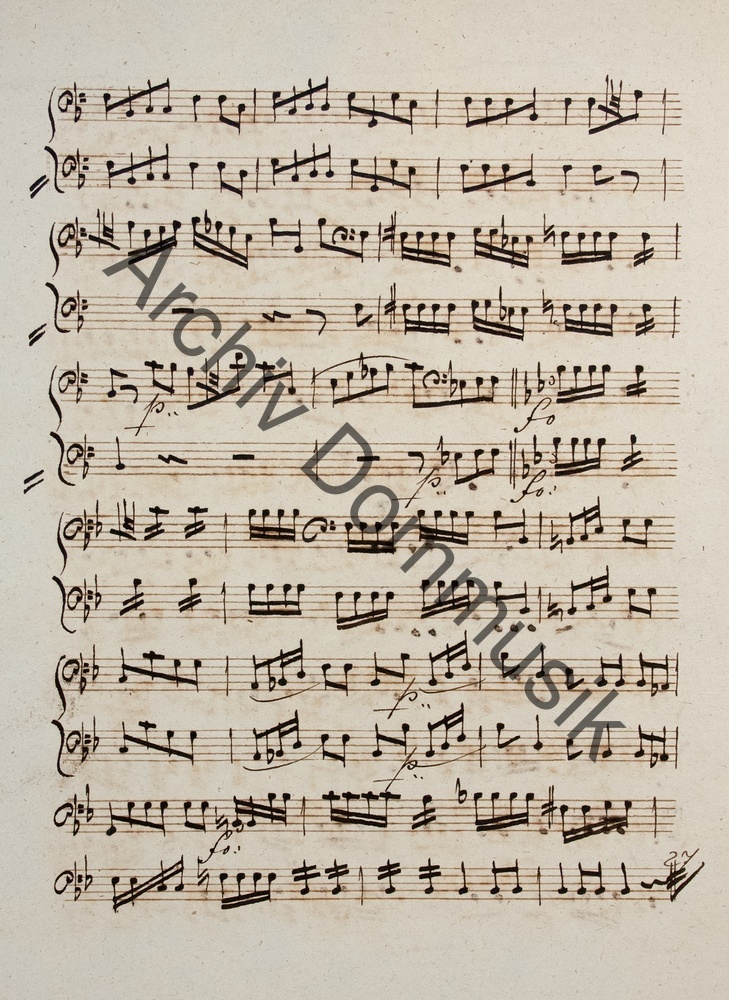 Archiv Dommusik
p:
fo
p:
fo:
p:
p:
fo: